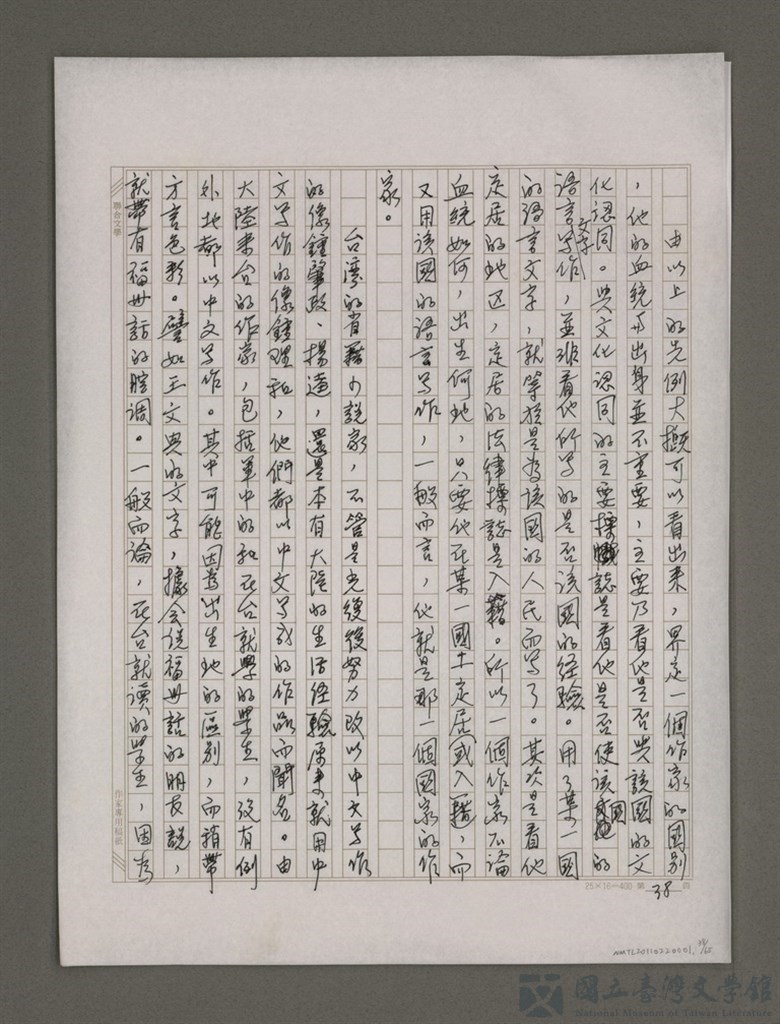 由以上的先例大概可以看出來，界定一個作家的國別
，他的血統和出身並不重要，主要乃看他是否與該國的文
化認同。與文化認同的主要標誌是看他是否使該國的
語言文字寫作，並非看他所寫的是否該國的經驗。用了某一國
的語言文字，就等於是為該國的人民而寫了。其次是看他
定居的地区，定居的法律標誌是入籍。所以一個作家不論
血統如何，出生何地，只要他在某一國土定居或入籍，而
又用該國的語言寫作，一般而言，他就是那一個國家的作
家。
台灣的省籍小說家，不管是光復後努力改以中文寫作
的像鍾肇政、楊逵，還是本有大陸的生活經驗原來就用中
文寫作的像鍾理和，他們都以中文寫成的作品而聞名。由
大陸來台的作家，包括軍中的和在台就學的學生，沒有例
外地都以中文寫作。其中可能因為出生地的區別，而稍帶
方言色彩。譬如王文興的文字，據会說福州話的朋友說，
就帶有福州話的腔調。一般而論，在台就讀的學生，因為
聯合文學
作家專用稿紙
25×16=400 第 38 頁
NMTL20110220001, 
國立臺灣文學館
National Museum of Taiwan Literature